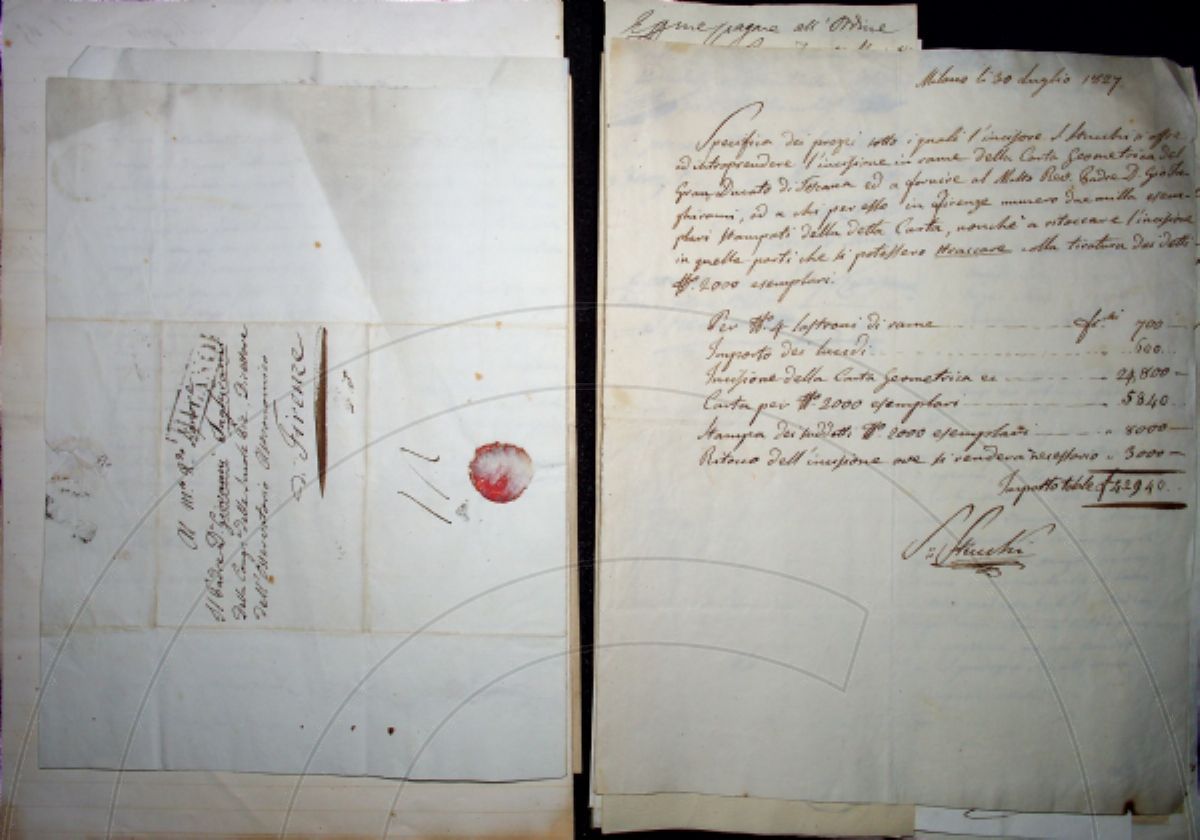 Al M.to R.do
Il Padre D.n Giovanni Inghirami
delle Scuole Pie Direttore
dell'Osservatorio Astronomico
di Firenze
pagare all'Ordine
Milano li 30 Luglio 1827.
Specifica dei prezzi sotto i quali l'incisore S. Stucchi s'offre
ad intraprendere l'incisione in rame della Carta Geometrica del
Gran Ducato di Toscana ed a fornire al Molto Rev. Padre D. Gio. In-
ghirami, od a chi per esso in Firenze numero due milla esem-
plari stampati della detta Carta, nonchè a ritoccare l'incisione
in quelle parti che si potessero straccare colla tiratura dei detti
N.º 2000 esemplari.
Per N.º 4 lastroni di rame 700
Importo dei lucidi 600
Incisione della Carta Geometrica 24,800
Carta per N.º 2000 esemplari 5840
Stampa dei suddetti N.º 2000 esemplari 8000
Ritocco dell'incisione ove si renderà necessario 3000
Importo totale £ 42940
S. Stucchi